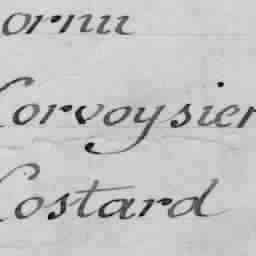 ornu
Corvoysier
Costard